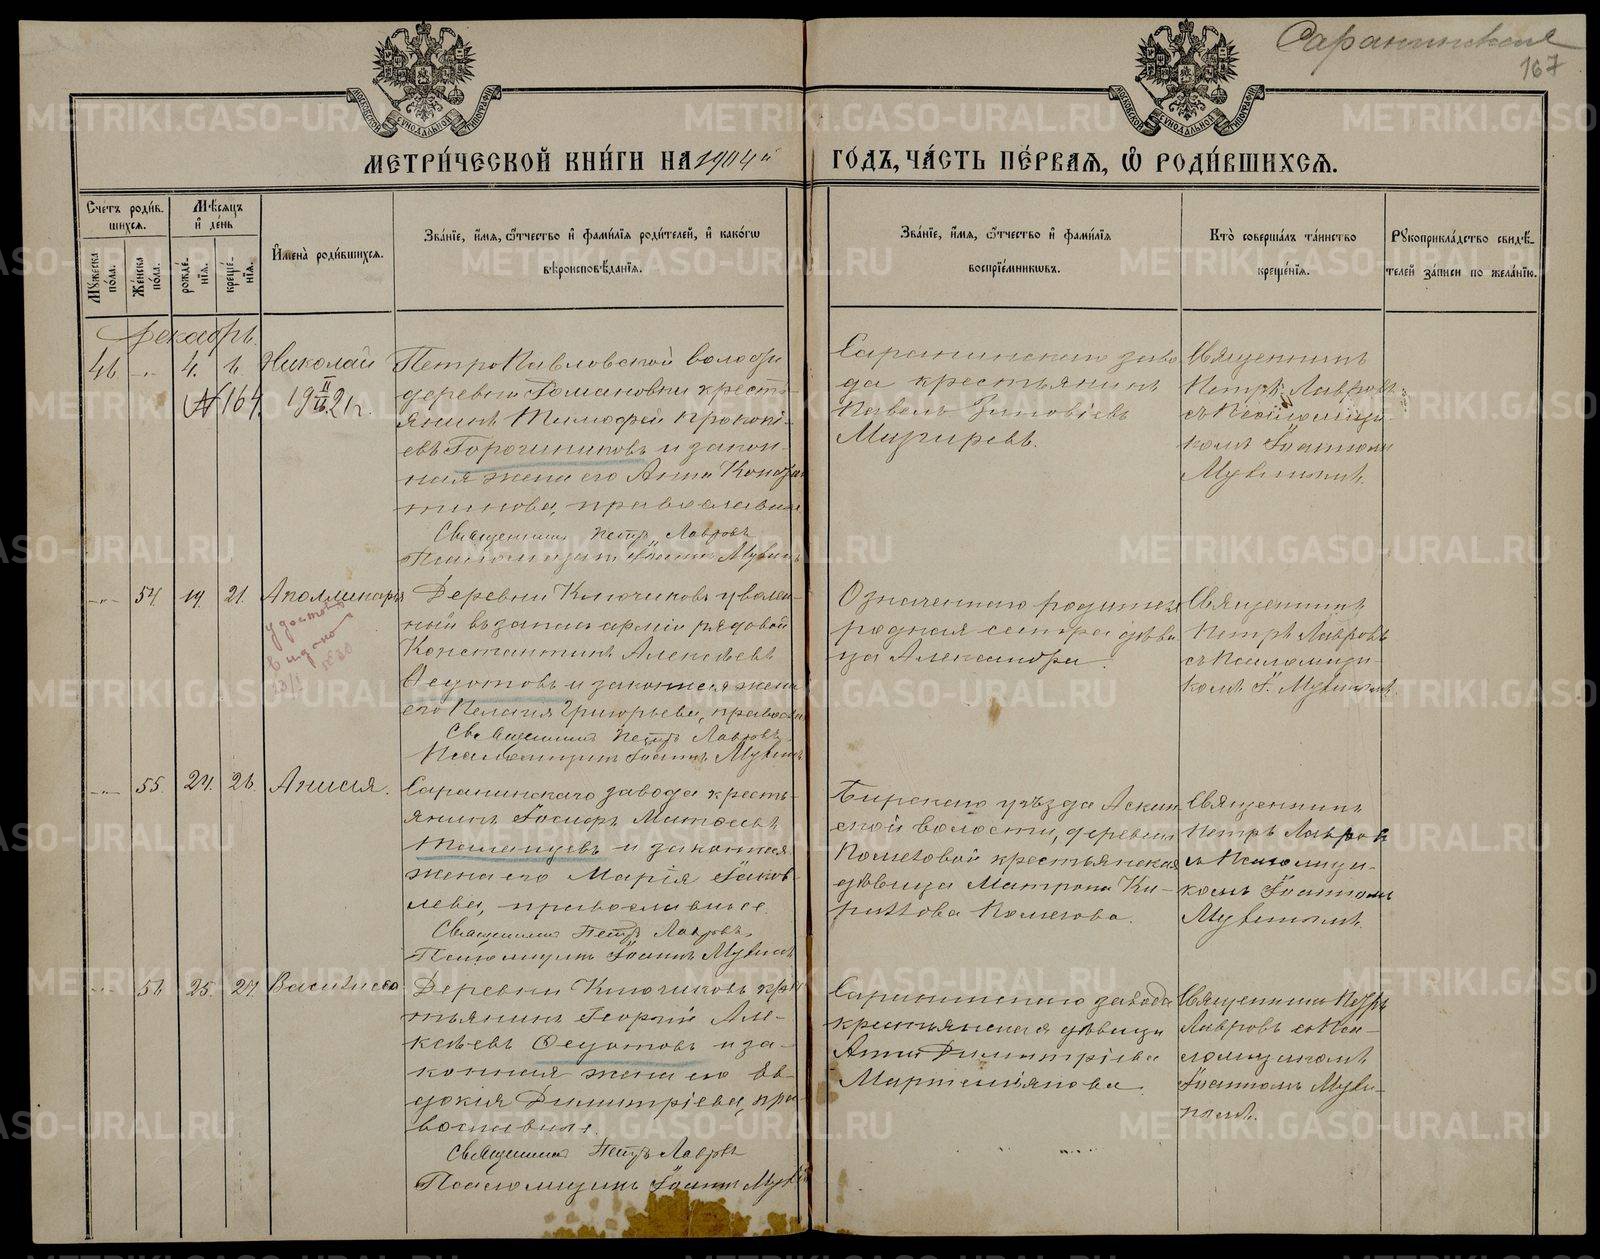 Саранинская
167
МЕТРИ́ЧЕСКОЙ КНИ́ГИ НА 1904й ГО́ДЪ, ЧА́СТЬ ПЕ́РВАЯ, Ѽ РОДИ́ВШИХСЯ.
Счетъ роди́вшихся.
Мѣ́сяцъ и҆ де́нь
И҆мена̀ роди́вшихся.
Зва́нїе, и҆́мя, ѻ҆́тчество и҆ фами́лїя роди́телей, и҆ како́гѡ вѣроисповѣ́данїя.
Зва́нїе, и҆́мя, ѻ҆́тчество и҆ фами́лїя воспрїе́мниковъ.
Кто̀ соверша́лъ та́инство креще́нїя.
Рꙋкоприкла́дство свидѣ́телей за́писи по жела́нїю.
Мꙋ́жеска по́ла.
Же́нска по́ла.
рожде́нїя.
креще́нїя.
Декабрь.
46 „ 4. 6 Николай
№ 164. 19 II/16 21 г.
Петропавловской волости
деревни Романовки кресть-
янинъ Тимофей Прокопi-
евъ Горошниковъ и закон-
ная жена его Анна Кондра-
тикова, православные
Священникъ Петръ Лавровъ
Псаломщикъ Іоаннъ Мувинъ
Саранинскаго заво
да крестьянинъ
Павелъ Зиновіевъ
Мизиревъ.
Священникъ
Петръ Лавровъ
съ Псаломщи-
комъ Іоанномъ
Мувинымъ.
„ 54. 19. 21. Аполлинарія
удостов
в идано
Деревни Ключиковъ уволен-
ный въ запасъ арміи рядовой
Константинъ Алексѣевъ
Ѳедотовъ и законная жена
его Пелагія Григорьева, правосл
Священникъ Петръ Лавровъ
Псаломщикъ Іоаннъ Мувинъ
Означеннаго родителя
родная сестра дѣви
ца Александра.
Священникъ
Петръ Лавровъ
съ Псаломщи-
комъ І. Мувинымъ.
„ 55. 24. 26. Анисія.
Саранинскаго завода кресть-
янинъ Іосифъ Матѳеевъ
Таланцевъ и законная
жена его Марія Іаков-
лева, православные.
Священникъ Петръ Лавровъ
Псаломщикъ Іоаннъ Мувинъ
Бирскаго уѣзда Аскин
ской волости, деревни
крестьянская
дѣвица Матрона Ки-
риллова
Священникъ
Петръ Лавровъ
съ Псаломщи-
комъ Іоанномъ
Мувинымъ.
„ 56 25. 27 Василиса
Деревни Ключиковъ кре
стьянинъ Георгій Але-
ксѣевъ Ѳедотовъ и за-
конная жена его Ев-
докія Димитріева, пра
вославные.
Священникъ Петръ Лавровъ
Псаломщикъ Іоаннъ Мувинъ
Саранинскаго завода
крестьянская дѣвица
Анна Димитріева
Мартемьянова.
Священникъ Петръ
Лавровъ съ Пса-
ломщикомъ
Іоанномъ Муви-
нымъ.
METRIKI.GASO-URAL.RU